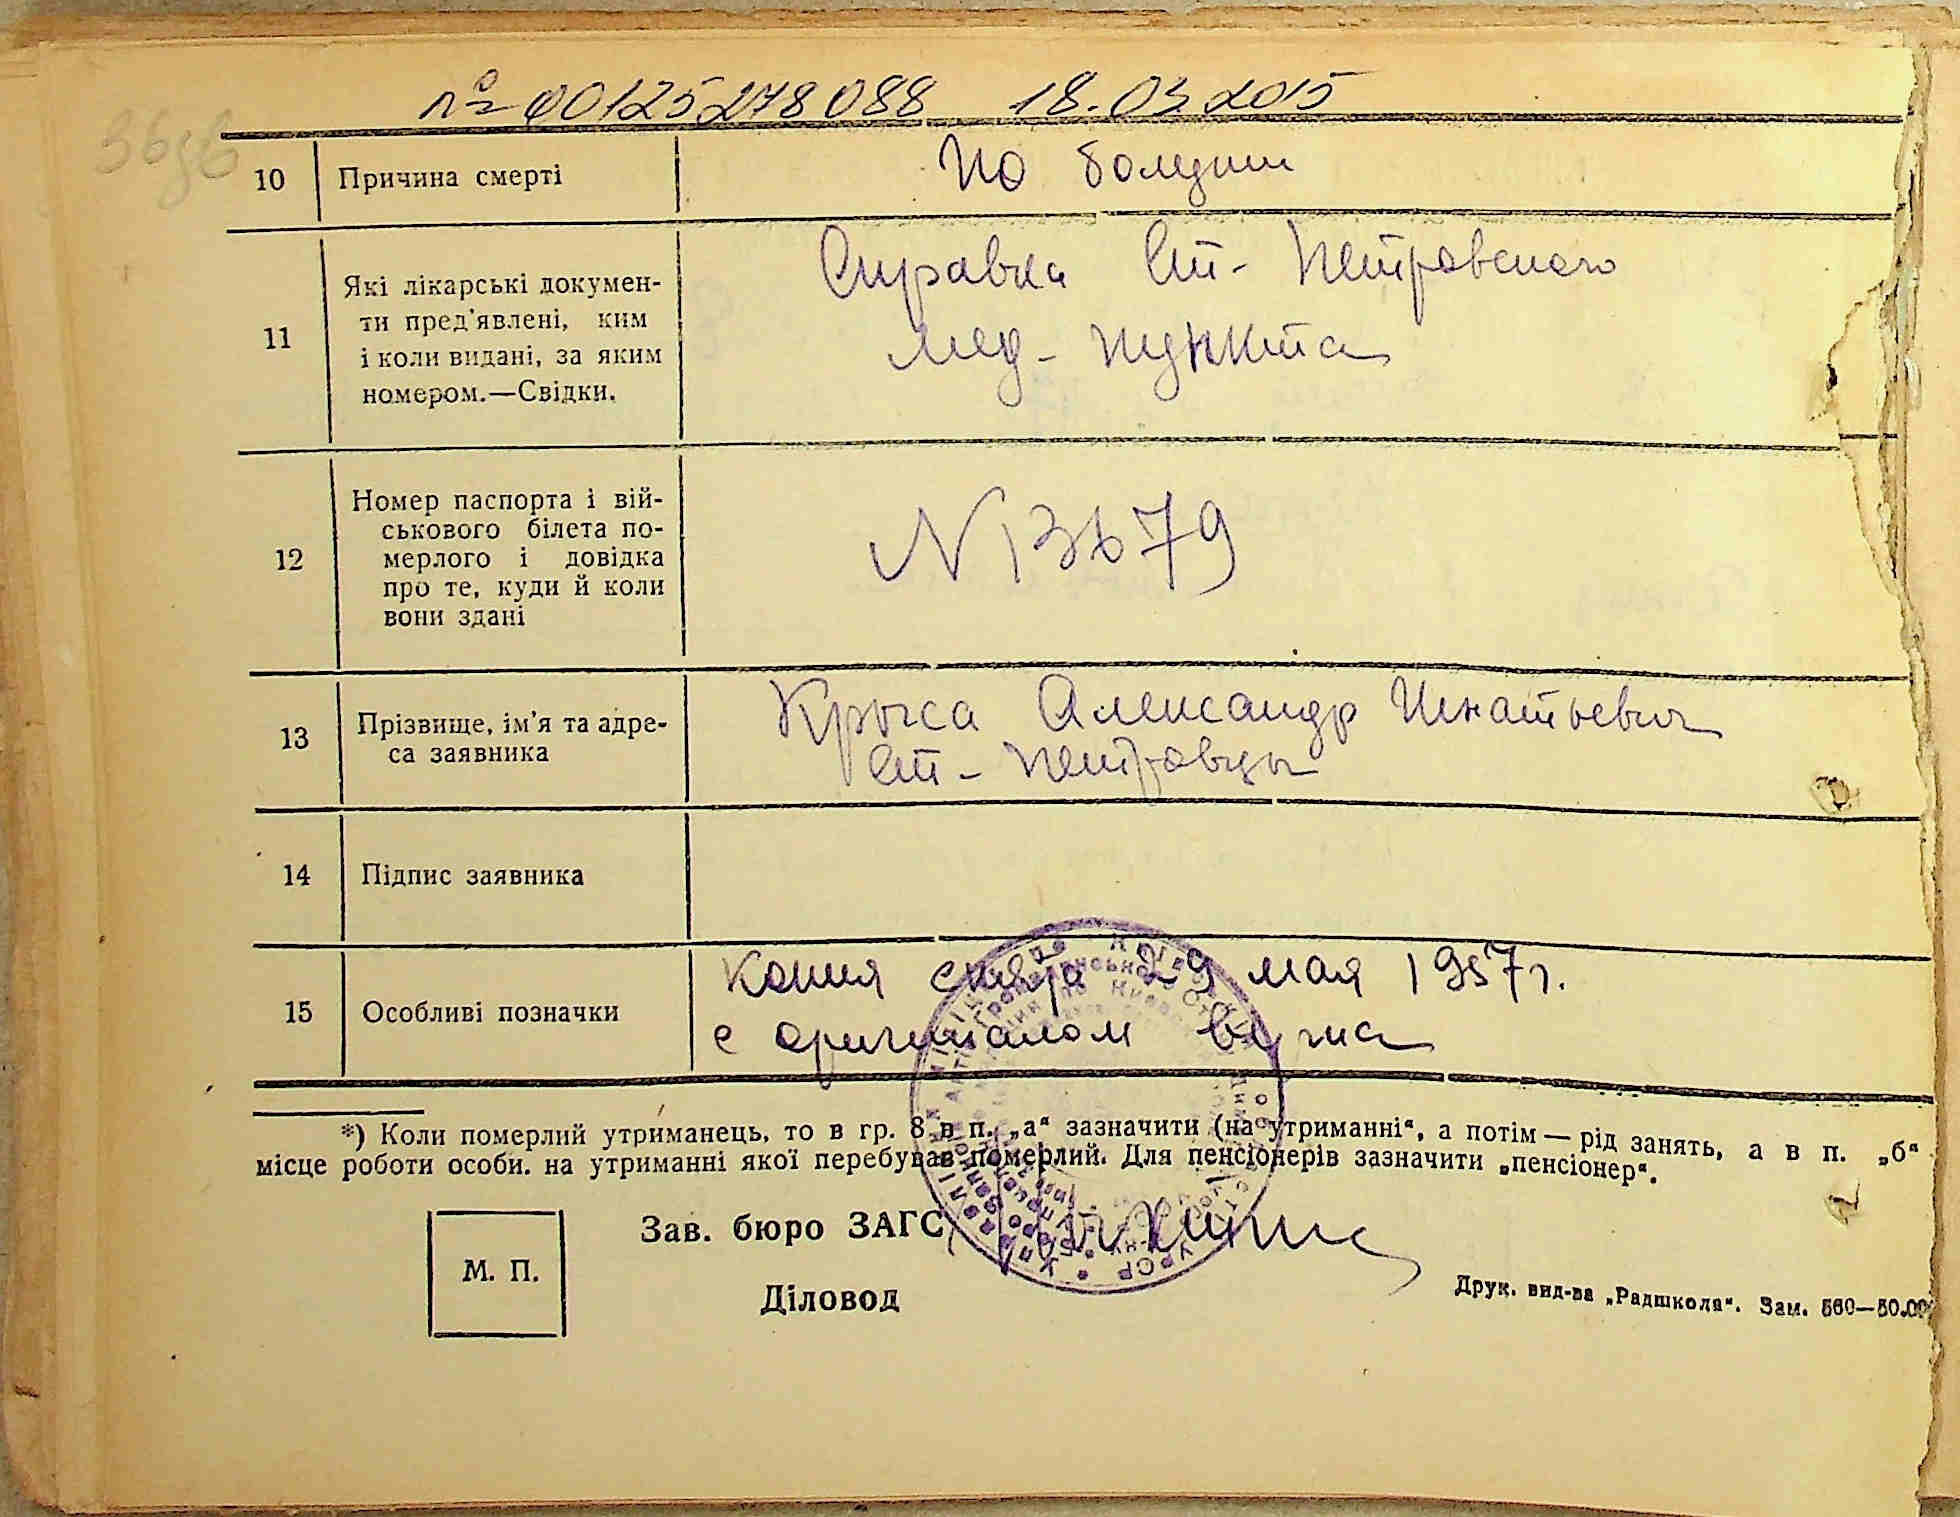 № 00125278088 18.03.2015
10 Причина смерті По болезни
11 Які лікарські докумен-
ти пред'явлені, ким
і коли видані, за яким
номером.—Свідки.
Справка Ст- Петровского
мед- пункта
12 Номер паспорта і вій-
ськового білета по-
мерлого і довідка
про те, куди й коли
вони здані
N 13679
13 Прізвище, ім'я та адре-
са заявника
Крыса Александр Игнатьевич
Ст- Петровцы
14 Підпис заявника
15 Особливі позначки
Копия снята 29 мая 1957г.
с оригиналом верна
*) Коли померлий утриманець, то в гр. 8 в п. „а“ зазначити (на утриманні“, а потім — рід занять, а в п. „б“
місце роботи особи. на утриманні якої перебував померлий. Для пенсіонерів зазначити „пенсіонер“.
Зав. бюро ЗАГС
М. П.
Діловод
Друк. вид-ва „Радшкола“. Зам. 560—50.00